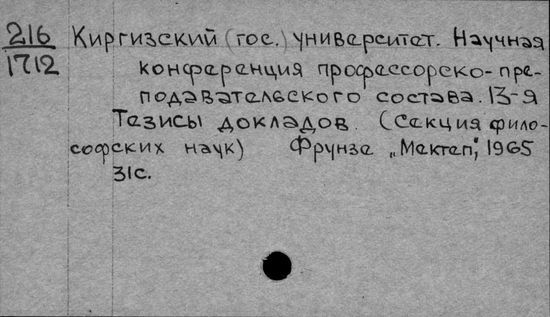 216 Киргизский (гос.) университет. Научная
1712 конференция профессорско-пре-
подавательского состава. 13-я
Тезисы докладов. (Секция фило-
софских наук) Фрунзе „Мектеп", 1965
31с.